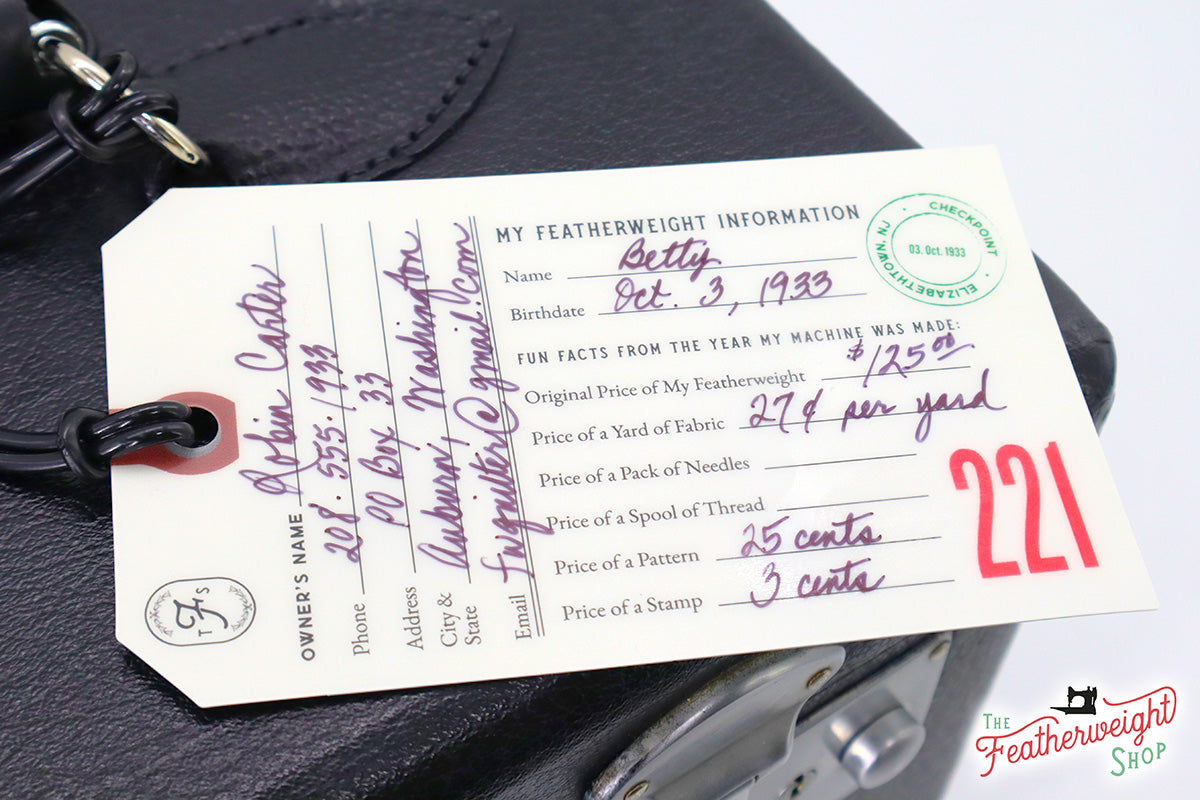 MY FEATHERWEIGHT INFORMATION
Name Betty
Birthdate Oct. 3, 1933
CHECKPOINT • ELIZABETHTOWN, NJ •
03. Oct. 1933
FUN FACTS FROM THE YEAR MY MACHINE WAS MADE:
Original Price of My Featherweight $125.00
Price of a Yard of Fabric 27¢ per yard
Price of a Pack of Needles
Price of a Spool of Thread
Price of a Pattern 25 cents
Price of a Stamp 3 cents
221
OWNER'S NAME Robin Carter
Phone 208.555.1933
Address PO Box 33
City & State Auburn, Washington
Email fwquilter@gmail.com
TFS
THE
Featherweight
SHOP